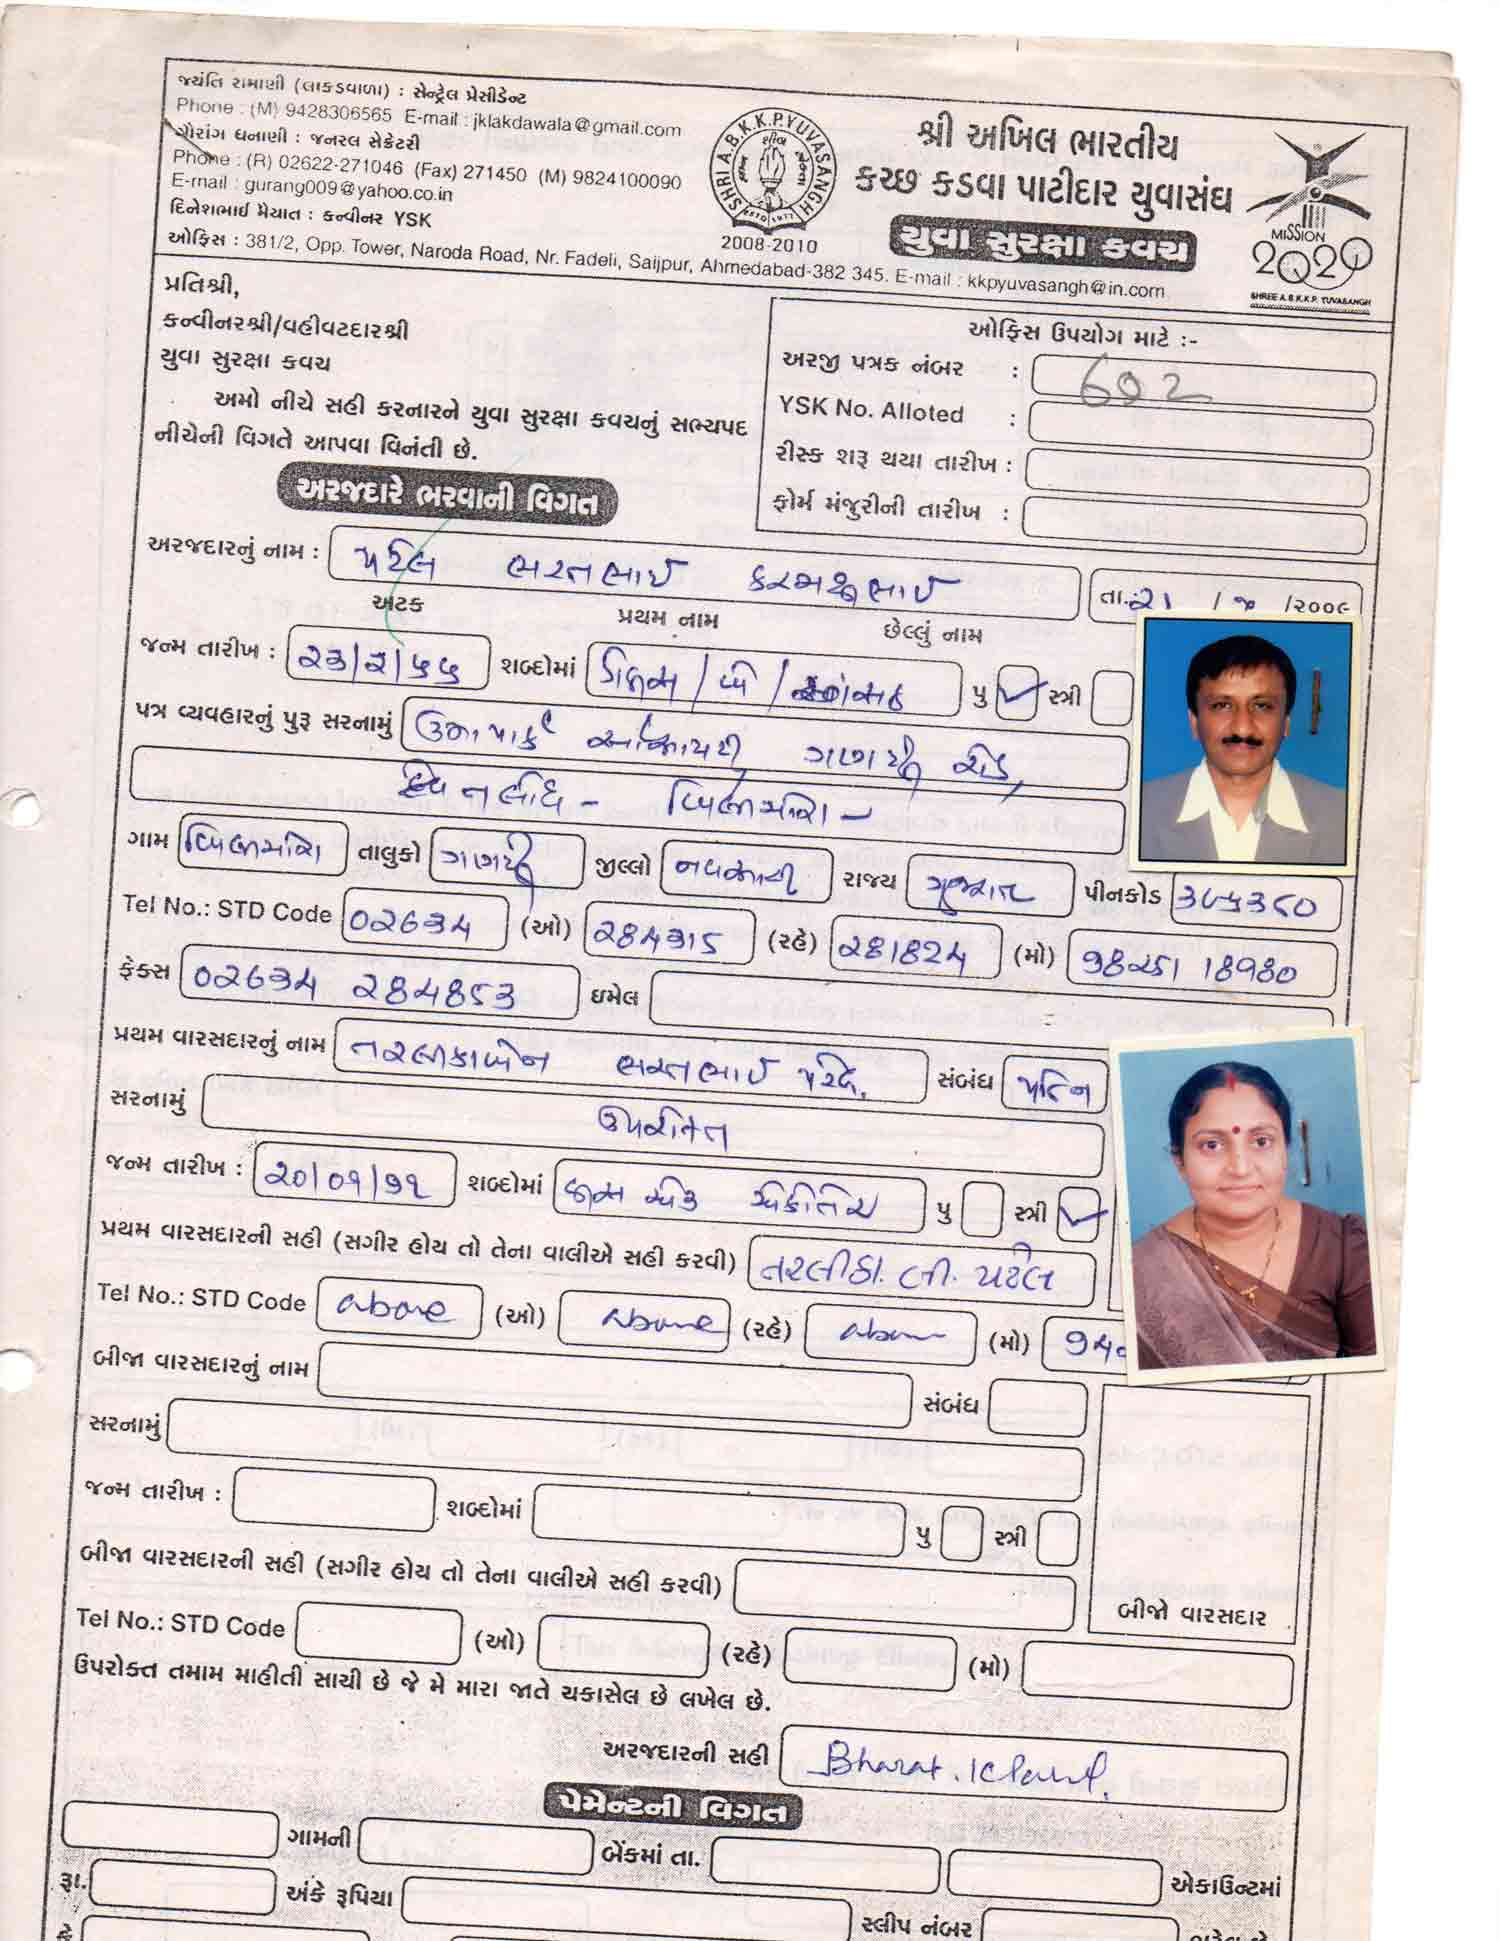 જયંતિ રામાણી (લાકડાવાળા) : સેન્ટ્રેલ પ્રેસીડેન્ટ
Phone : (M) 9428306565 E-mail : jklakdawala@gmail.com
ગૌરાંગ ધનાણી : જનરલ સેક્રેટરી
Phone : (R) 02622-271046 (Fax) 271450 (M) 9824100090
E-mail : gurang009@yahoo.co.in
દિનેશભાઈ મૈયાત : કન્વીનર YSK
ઓફિસ : 381/2, Opp. Tower, Naroda Road, Nr. Fadeli, Saijpur, Ahmedabad-382 345. E-mail : kkpyuvasangh@in.com
SHRI A.B.K.K.P. YUVASANGH
ESTD 1977
2008-2010
શ્રી અખિલ ભારતીય
કચ્છ કડવા પાટીદાર યુવાસંઘ
યુવા સુરક્ષા કવચ
MISSION
2020
SHREE A.B.K.K.P. YUVASANGH
પ્રતિશ્રી,
કન્વીનરશ્રી/વહીવટદારશ્રી
યુવા સુરક્ષા કવચ
અમો નીચે સહી કરનારને યુવા સુરક્ષા કવચનું સભ્યપદ
નીચેની વિગતે આપવા વિનંતી છે.
ઓફિસ ઉપયોગ માટે :-
અરજી પત્રક નંબર : 602
YSK No. Alloted :
રીસ્ક શરૂ થયા તારીખ :
ફોર્મ મંજુરીની તારીખ :
અરજદારે ભરવાની વિગત
અરજદારનું નામ : પટેલ ભરતભાઈ કરમશીભાઈ તા. ૨૧ / ૧ /૨૦૦૯
અટક પ્રથમ નામ છેલ્લું નામ
જન્મ તારીખ : ૨૩/૨/૫૫ શબ્દોમાં પુ ✓ સ્ત્રી
પત્ર વ્યવહારનું પુરૂ સરનામું ઉમાપાર્ક સોસાયટી ગણદેવી રોડ,
બિલીમોરા -
ગામ બિલીમોરા તાલુકો ગણદેવી જીલ્લો નવસારી રાજ્ય ગુજરાત પીનકોડ
Tel No.: STD Code 02634 (ઓ) 284315 (રહે) 281824 (મો) 98251 18980
ફેક્સ 02634 284853 ઇમેલ
પ્રથમ વારસદારનું નામ તરલીકાબેન ભરતભાઈ પટેલ. સંબંધ પત્નિ
સરનામું ઉપરોક્ત
જન્મ તારીખ : શબ્દોમાં પુ સ્ત્રી ✓
પ્રથમ વારસદારની સહી (સગીર હોય તો તેના વાલીએ સહી કરવી) તરલીકા. બી. પટેલ
Tel No.: STD Code above (ઓ) above (રહે) above (મો)
બીજા વારસદારનું નામ સંબંધ
સરનામું
જન્મ તારીખ : શબ્દોમાં પુ સ્ત્રી
બીજા વારસદારની સહી (સગીર હોય તો તેના વાલીએ સહી કરવી)
બીજો વારસદાર
Tel No.: STD Code (ઓ) (રહે) (મો)
ઉપરોક્ત તમામ માહીતી સાચી છે જે મે મારા જાતે ચકાસેલ છે લખેલ છે.
અરજદારની સહી Bharat. K
પેમેન્ટની વિગત
ગામની બેંકમાં તા. એકાઉન્ટમાં
રૂા. અંકે રૂપિયા સ્લીપ નંબર